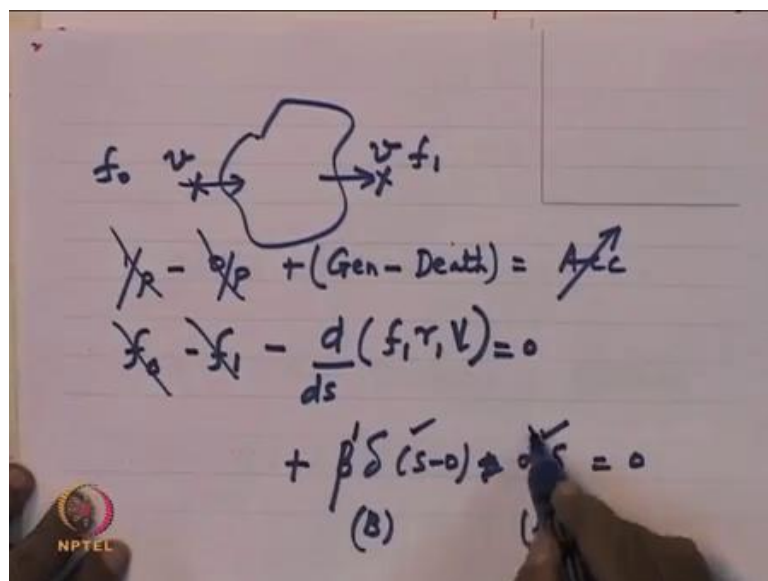 f₀ v v f₁
I/R - O/P + (Gen - Death) = Acc
f₀ - f₁ - d/ds (f₁ r₁ V) = 0
+ β' δ (s-0) = 0
(B)
NPTEL